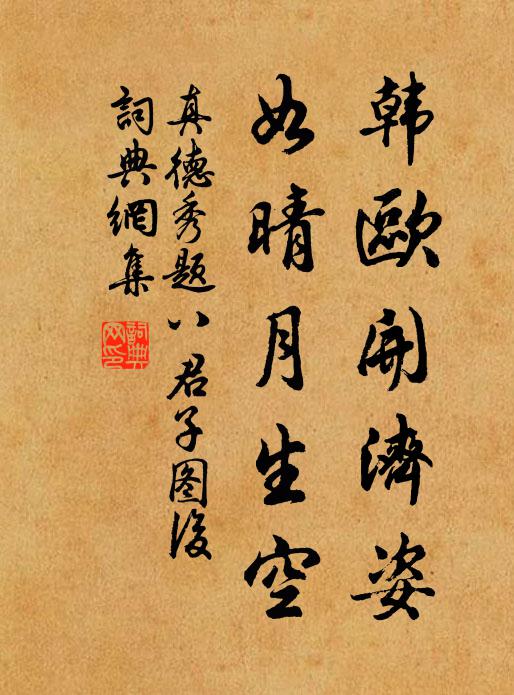 韩歐開濟姿
如晴月生空
真德秀题八君子图後
詞典網集
詞典网印